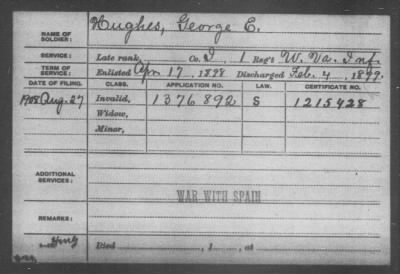 NAME OF SOLDIER: Hughes, George E.
SERVICE: Late rank, Co. I, 1 Reg't W. Va. Inf.
TERM OF SERVICE: Enlisted Apr. 17, 1898 Discharged Feb. 4, 1899.
DATE OF FILING. CLASS. APPLICATION NO. LAW. CERTIFICATE NO.
1908 Aug. 27 Invalid, 1376892 S 1215428
Widow,
Minor,
ADDITIONAL SERVICES:
WAR WITH SPAIN
REMARKS:
Died , 1 , at